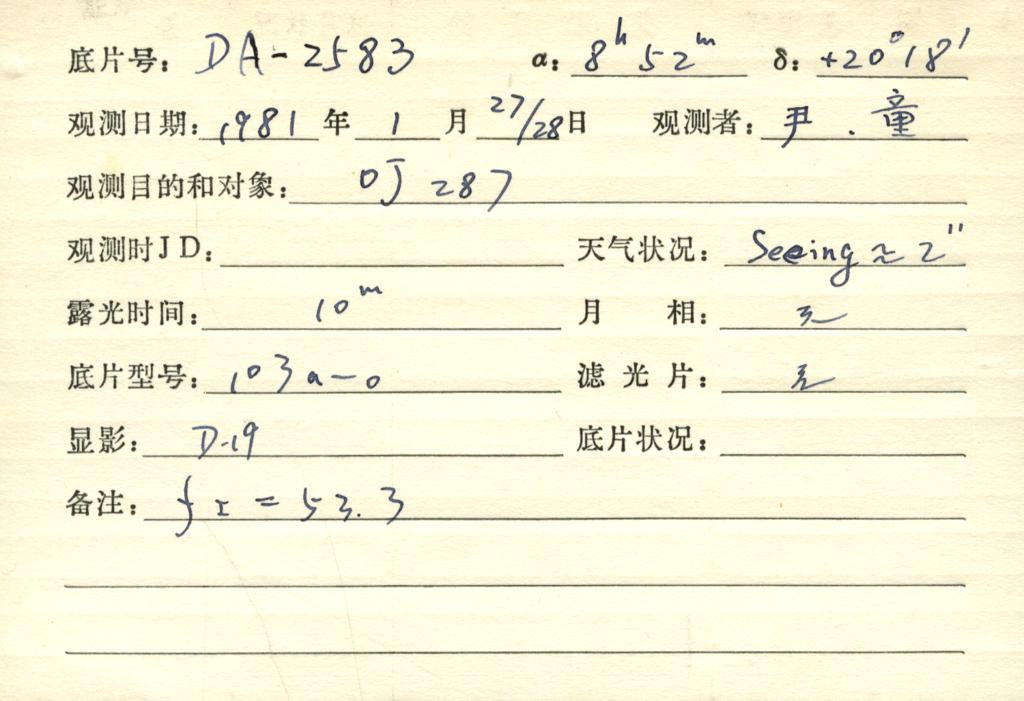 底片号: DA-2583 α: 8ʰ 52ᵐ δ: +20°18′
观测日期: 1981 年 1 月 27/28 日 观测者: 尹 . 童
观测目的和对象: OJ 287
观测时JD: 天气状况: Seeing ≈ 2″
露光时间: 10ᵐ 月 相: 无
底片型号: 103a-o 滤光片: 无
显影: D-19 底片状况:
备注: fx = 53.3